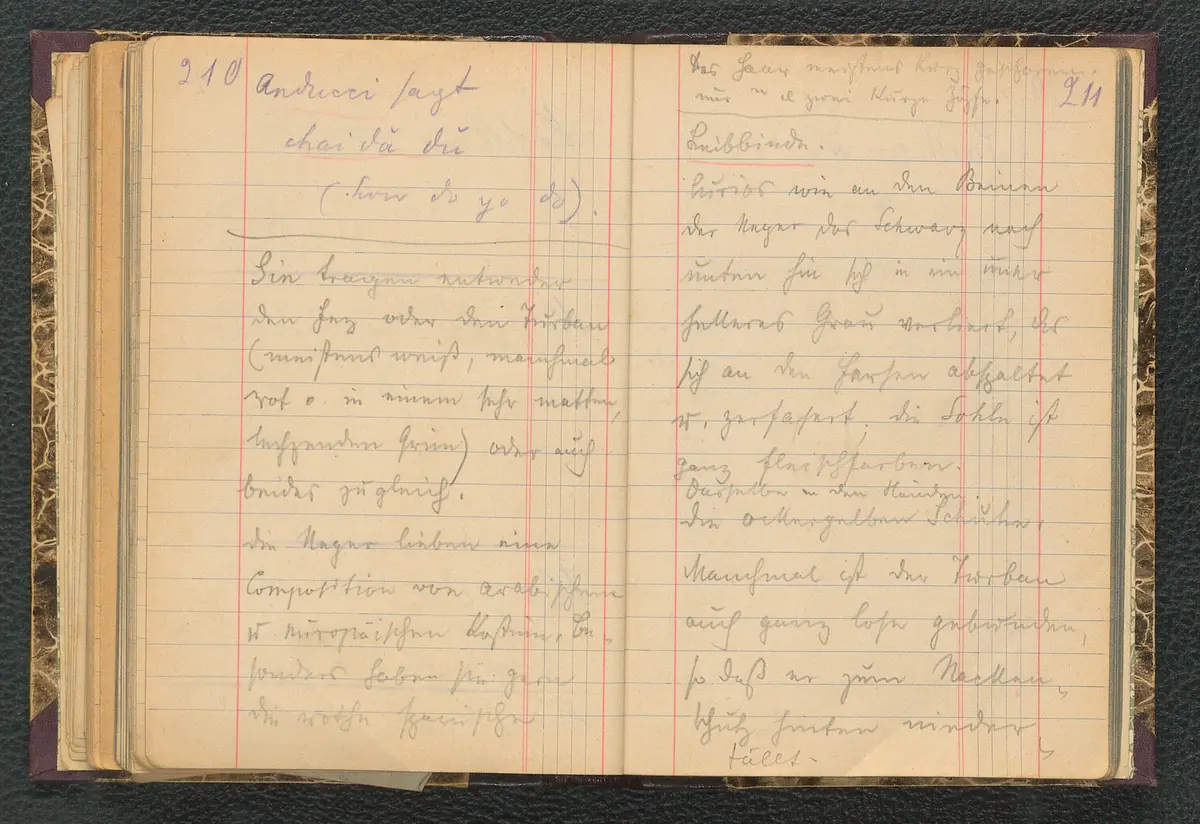 210
Anducci sagt
chai dä du
(how do yo do).
Sie tragen entweder
den Fez oder den Turban
(meistens weiß, manchmal
rot o. in einem sehr matten,
lechzenden Grün) oder auch
beides zugleich.
die Neger lieben eine
Composition von arabischem
u europäischen Kostüm. Be-
sonders haben sie gern
die rothe spanische
211
Das Haar meistens kurz geschoren.
nur zwei kurze Zöpfe.
Leibbinde.
Curios wie an den Beinen
der Neger das Schwarz nach
unten hin sich in ein immer
helleres Grau verliert, das
sich an den Farsen abspaltet
u. zerfasert, die Sohle ist
ganz fleischfarben.
Dasselbe in den Händen.
die ockergelben Schuhe.
Manchmal ist der Turban
auch ganz lose gebunden,
so daß er zum Nacken-
schutz hinten nieder-
fällt.